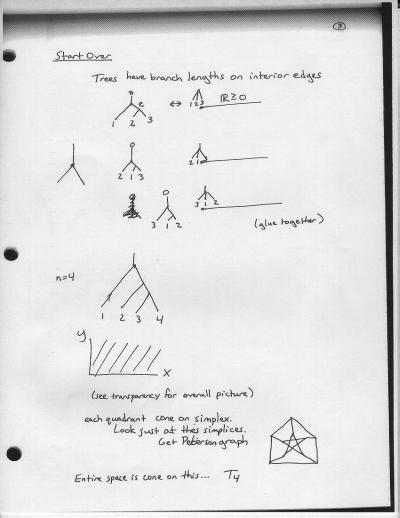 3
Start Over
Trees have branch lengths on interior edges
0 e 1 2 3 ↔ 1 2 3 ℝ≥0
0 2 1 3 2 1 3
0 3 1 2 3 1 2
(glue together)
n=4
1 2 3 4
y
x
(see transparency for overall picture)
each quadrant cone on simplex.
Look just at these simplices.
Get Peterson graph
Entire space is cone on this... T4